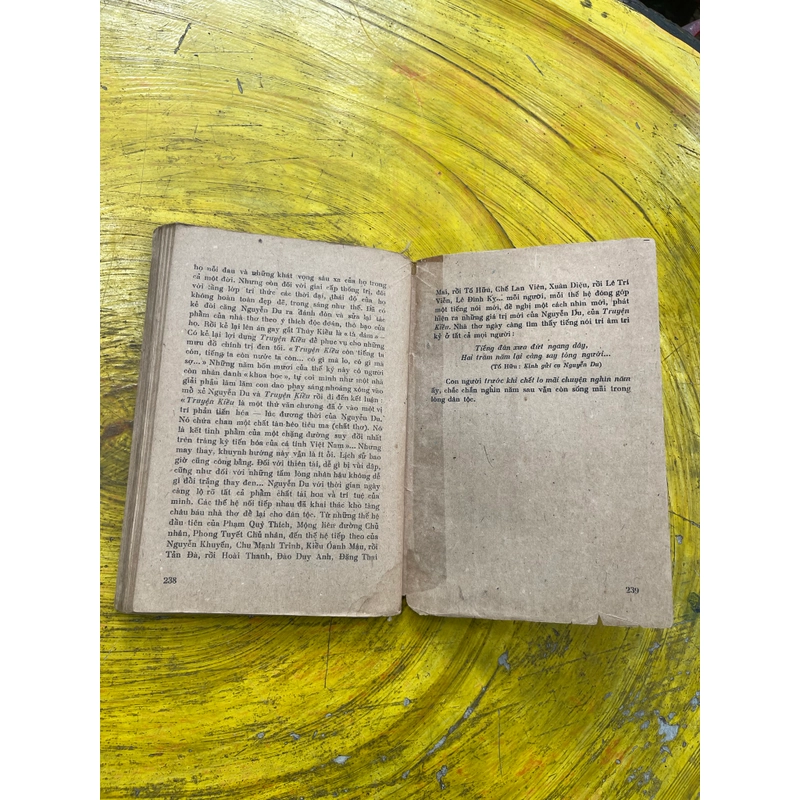 họ nỗi đau và những khát vọng sâu xa của họ trong
cả một đời. Nhưng còn đối với giai cấp thống trị, đối
với tầng lớp trí thức các thời đại, thái độ của họ
không hoàn toàn đẹp đẽ, trong sáng như thế. Đã có
kẻ đòi căng Nguyễn Du ra đánh đòn và sửa lại tác
phẩm của nhà thơ theo ý thích độc đoán, thô bạo của
họ. Rồi kẻ lại lên án gay gắt Thúy Kiều là « tà dâm »
Có kẻ lại lợi dụng Truyện Kiều để phục vụ cho những
mưu đồ chính trị đen tối. « Truyện Kiều còn tiếng ta
còn, tiếng ta còn nước ta còn... có gì mà lo, có gì mà
sợ... » Những năm bốn mươi của thế kỷ này có người
còn nhân danh « khoa học », tự coi mình như một nhà
giải phẫu lăm lăm con dao phay sáng nhoáng xông vào
mổ xẻ Nguyễn Du và Truyện Kiều rồi đi đến kết luận :
« Truyện Kiều là một thứ văn chương đã ở vào một vị
trí phản tiến hóa — lúc đương thời của Nguyễn Du.
Nó chứa chan một chất tán héo tiêu ma (chất thơ). Nó
là kết tinh phẩm của một chặng đường suy đồi nhất
trên tràng kỳ tiến hóa của cá tính Việt Nam »... Nhưng
may thay, khuynh hướng này vẫn là ít ỏi. Lịch sử bao
giờ cũng công bằng. Đối với thiên tài, dễ gì bị vùi dập,
cũng như đối với những tấm lòng nhân hậu không dễ
gì đổi trắng thay đen... Nguyễn Du với thời gian ngày
càng lộ rõ tất cả phẩm chất tài hoa và trí tuệ của
mình. Các thế hệ nối tiếp nhau đã khai thác kho tàng
châu báu nhà thơ để lại cho dân tộc. Từ những thế hệ
đầu tiên của Phạm Quý Thích, Mộng liên đường Chủ
nhân, Phong Tuyết Chủ nhân, đến thế hệ tiếp theo của
Nguyễn Khuyến, Chu Mạnh Trinh, Kiều Oánh Mậu, rồi
Tản Đà, rồi Hoài Thanh, Đào Duy Anh, Đặng Thai
238
Mai, rồi Tố Hữu, Chế Lan Viên, Xuân Diệu, rồi Lê Trí
Viễn, Lê Đình Kỵ... mỗi người, mỗi thế hệ đóng góp
một tiếng nói mới, đề nghị một cách nhìn mới, phát
hiện ra những giá trị mới của Nguyễn Du, của Truyện
Kiều. Nhà thơ ngày càng tìm thấy tiếng nói tri âm tri
kỷ ở tất cả mọi người :
Tiếng đàn xưa đứt ngang dây,
Hai trăm năm lại càng say lòng người...
(Tố Hữu : Kính gửi cụ Nguyễn Du)
Con người trước khi chết lo mãi chuyện nghìn năm
ấy, chắc chắn nghìn năm sau vẫn còn sống mãi trong
lòng dân tộc.
239